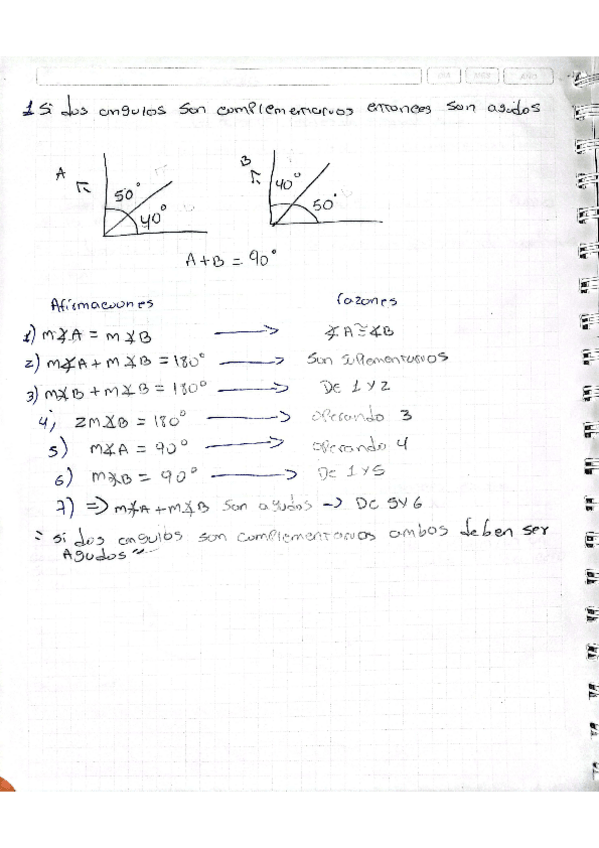 1 Si dos angulos son complementarios entonces son agudos
A 50° 40°
B 40° 50°
A+B = 90°
Afirmaciones razones
1) m∡A = m∡B → ∡A≅∡B
2) m∡A + m∡B = 180° → Son suplementarios
3) m∡B + m∡B = 180° → De 1 y 2
4) 2m∡B = 180° → operando 3
5) m∡A = 90° → operando 4
6) m∡B = 90° → De 1 y 5
7) => m∡A + m∡B Son agudos -> De 5 y 6
= si dos angulos son complementarios ambos deben ser
Agudos